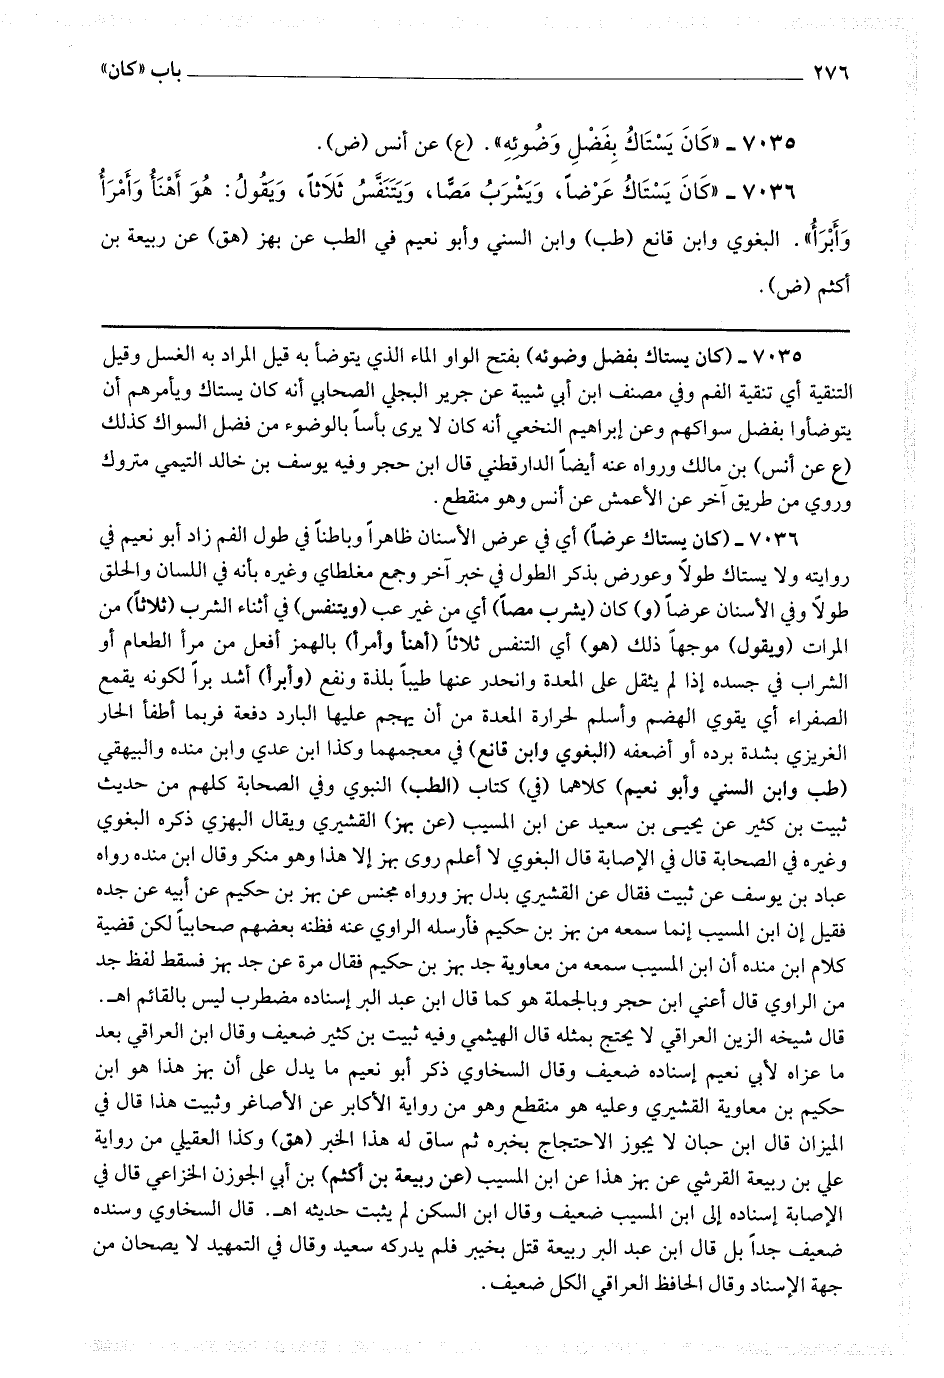 ٢٧٦ باب «كان»
٧٠٣٥ ـ «كَانَ يَسْتَاكُ بِفَضْلِ وَضُوئِهِ». (ع) عن أنس (ض).
٧٠٣٦ ـ «كَانَ يَسْتَاكُ عَرْضاً، وَيَشْرَبُ مَصًّا، وَيَتَنَفَّسُ ثَلَاثاً، وَيَقُولُ: هُوَ أَهْنَأُ وَأَمْرَأُ
وَأَبْرَأُ». البغوي وابن قانع (طب) وابن السني وأبو نعيم في الطب عن بهز (هق) عن ربيعة بن
أكثم (ض).
٧٠٣٥ ـ (كان يستاك بفضل وضوئه) بفتح الواو الماء الذي يتوضأ به قيل المراد به الغسل وقيل
التنقية أي تنقية الفم وفي مصنف ابن أبي شيبة عن جرير البجلي الصحابي أنه كان يستاك ويأمرهم أن
يتوضأوا بفضل سواكهم وعن إبراهيم النخعي أنه كان لا يرى بأساً بالوضوء من فضل السواك كذلك
(ع عن أنس) بن مالك ورواه عنه أيضاً الدارقطني قال ابن حجر وفيه يوسف بن خالد التيمي متروك
وروي من طريق آخر عن الأعمش عن أنس وهو منقطع.
٧٠٣٦ ـ (كان يستاك عرضاً) أي في عرض الأسنان ظاهراً وباطناً في طول الفم زاد أبو نعيم في
روايته ولا يستاك طولاً وعورض بذكر الطول في خبر آخر وجمع مغلطاي وغيره بأنه في اللسان والحلق
طولاً وفي الأسنان عرضاً (و) كان (يشرب مصاً) أي من غير عب (ويتنفس) في أثناء الشرب (ثلاثاً) من
المرات (ويقول) موجهاً ذلك (هو) أي التنفس ثلاثاً (أهنأ وأمرأ) بالهمز أفعل من مرأ الطعام أو
الشراب في جسده إذا لم يثقل على المعدة وانحدر عنها طيباً بلذة ونفع (وأبرأ) أشد برأ لكونه يقمع
الصفراء أي يقوي الهضم وأسلم لحرارة المعدة من أن يهجم عليها البارد دفعة فربما أطفأ الحار
الغريزي بشدة برده أو أضعفه (البغوي وابن قانع) في معجمهما وكذا ابن عدي وابن منده والبيهقي
(طب وابن السني وأبو نعيم) كلاهما (في) كتاب (الطب) النبوي وفي الصحابة كلهم من حديث
ثبيت بن كثير عن يحيى بن سعيد عن ابن المسيب (عن بهز) القشيري ويقال البهزي ذكره البغوي
وغيره في الصحابة قال في الإصابة قال البغوي لا أعلم روى بهز إلا هذا وهو منكر وقال ابن منده رواه
عباد بن يوسف عن ثبيت فقال عن القشيري بدل بهز ورواه مخنس عن بهز بن حكيم عن أبيه عن جده
فقيل إن ابن المسيب إنما سمعه من بهز بن حكيم فأرسله الراوي عنه فظنه بعضهم صحابياً لكن قضية
كلام ابن منده أن ابن المسيب سمعه من معاوية جد بهز بن حكيم فقال مرة عن جد بهز فسقط لفظ جد
من الراوي قال أعني ابن حجر وبالجملة هو كما قال ابن عبد البر إسناده مضطرب ليس بالقائم اهـ.
قال شيخه الزين العراقي لا يحتج بمثله قال الهيثمي وفيه ثبيت بن كثير ضعيف وقال ابن العراقي بعد
ما عزاه لأبي نعيم إسناده ضعيف وقال السخاوي ذكر أبو نعيم ما يدل على أن بهز هذا هو ابن
حكيم بن معاوية القشيري وعليه هو منقطع وهو من رواية الأكابر عن الأصاغر وثبيت هذا قال في
الميزان قال ابن حبان لا يجوز الاحتجاج بخبره ثم ساق له هذا الخبر (هق) وكذا العقيلي من رواية
علي بن ربيعة القرشي عن بهز هذا عن ابن المسيب (عن ربيعة بن أكثم) بن أبي الجوزن الخزاعي قال في
الإصابة إسناده إلى ابن المسيب ضعيف وقال ابن السكن لم يثبت حديثه اهـ. قال السخاوي وسنده
ضعيف جداً بل قال ابن عبد البر ربيعة قتل بخيبر فلم يدركه سعيد وقال في التمهيد لا يصحان من
جهة الإسناد وقال الحافظ العراقي الكل ضعيف.